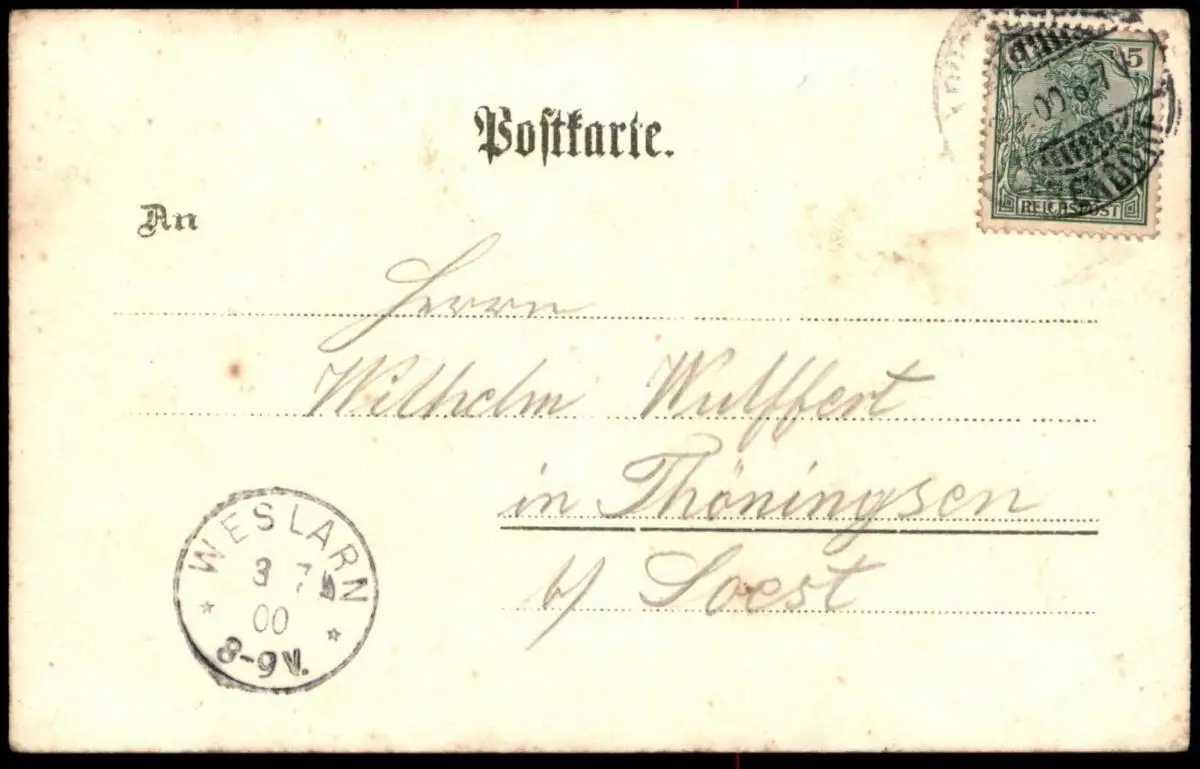 Postkarte.
An
5
00 6-7
REICHSPOST
Herrn
Wilhelm Wulffert
in Thöningsen
b/ Soest
WESLARN
3 7
00
8-9 V.